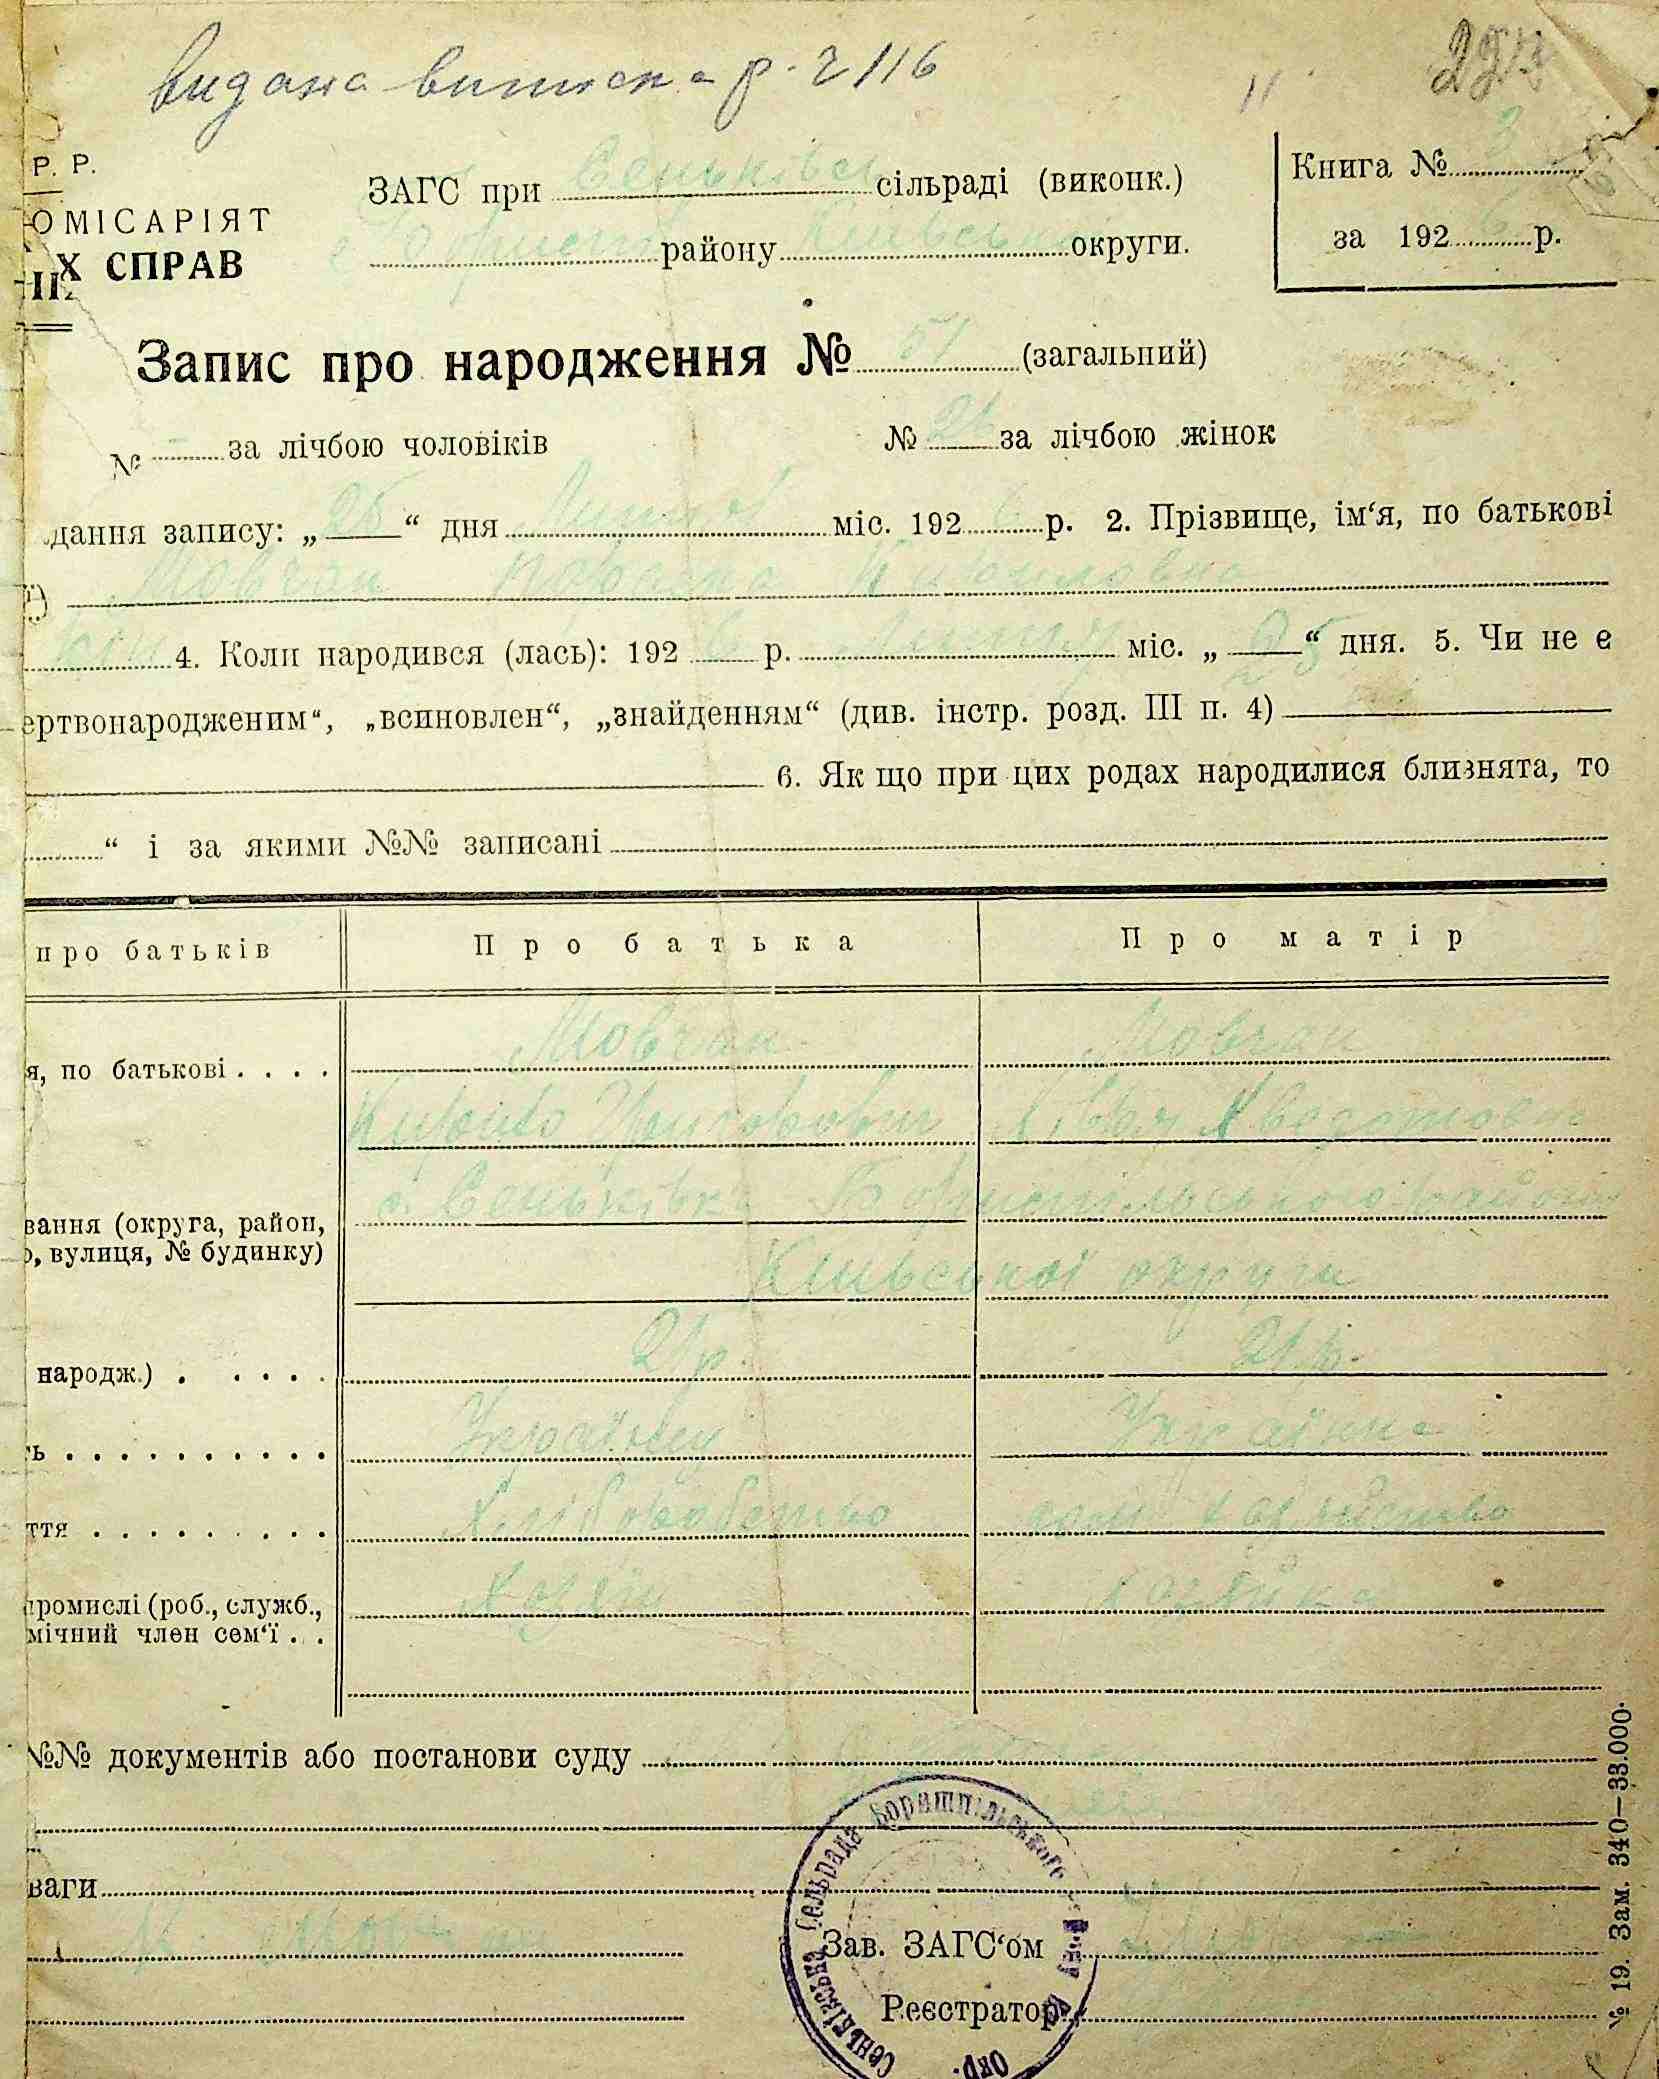 видана виписка р. 2116
Р. Р.
ОМІСАРІЯТ
Х СПРАВ
ЗАГС при Сеньківс сільраді (виконк.)
району Київської округи.
Книга № 3
за 1926 р.
Запис про народження № 51 (загальний)
№ - за лічбою чоловіків
№ за лічбою жінок
дання запису: „25“ дня міс. 1926 р. 2. Прізвище, ім‘я, по батькові
Мовчан Кириловна
4. Коли народився (лась): 1926 р. міс. „25“ дня. 5. Чи не є
ертвонародженим“, „всиновлен“, „знайденням“ (див. інстр. розд. III п. 4)
6. Як що при цих родах народилися близнята, то
“ і за якими №№ записані
про батьків
Про батька
Про матір
я, по батькові . . . .
Мовчан
Мовчан
Кирило Григорович
вання (округа, район,
о, вулиця, № будинку)
с. Сеньківка Бориспільського району
Київської округи
народж.) . . . . . .
21 р.
21 р.
ь . . . . . . . . . .
Українец
Українка
ття . . . . . . . . .
Хліборобство
дом хозяйство
промислі (роб., служб.,
мічний член сем‘ї . .
хозяін
хозяйка
№№ документів або постанови суду
ваги
Сеньківська Сельрада Боришпільського
Окр.
Зав. ЗАГС‘ом
Реєстратор
№ 19. Зам. 340—33.000.